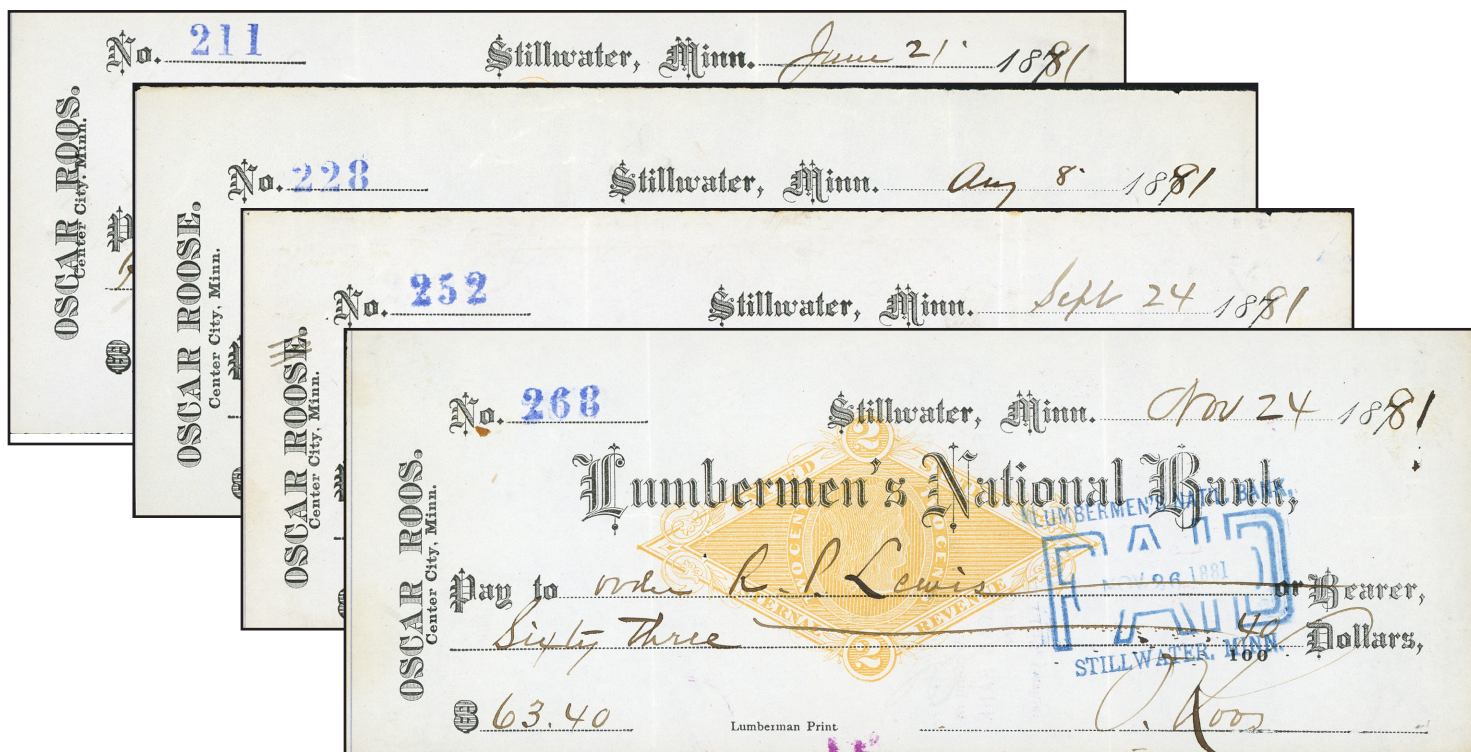 No. 211 Stillwater, Minn. June 21 1881
OSCAR ROOS.
Center City, Minn.
No. 228 Stillwater, Minn. Aug 8 1881
OSCAR ROOSE.
Center City, Minn.
No. 252 Stillwater, Minn. Sept 24 1881
OSCAR ROOSE.
Center City, Minn.
No. 268 Stillwater, Minn. Nov 24 1881
OSCAR ROOS.
Center City, Minn.
Lumbermen's National Bank,
LUMBERMEN'S NAT'L BANK.
PAID
NOV 26 1881
STILLWATER, MINN.
Pay to order R. P. Lewis or Bearer,
Sixty three 40/100 Dollars,
$ 63.40 O. Roos
Lumberman Print
2
INTERNAL REVENUE
2